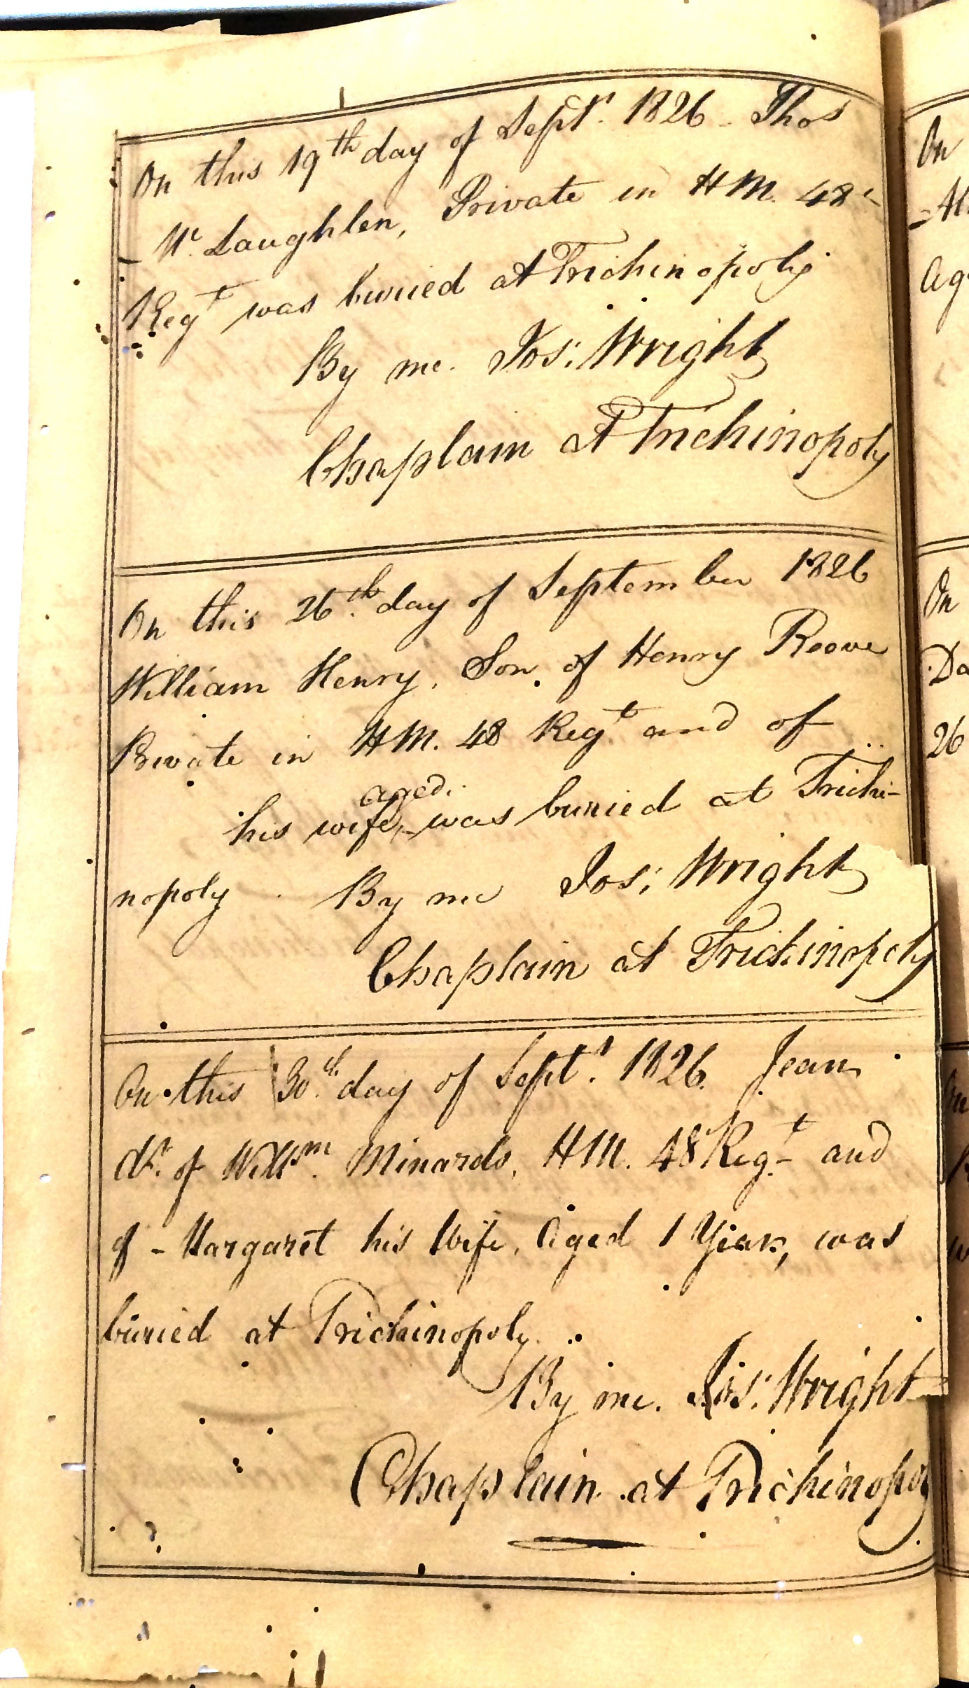 On this 19th day of Septr. 1826 - Thos
- Mc Laughlen, Private in HM. 48
Regt was buried at Trichinopoly
By me. Jos: Wright
Chaplain at Trichinopoly
On this 26th day of September 1826
William Henry, Son of Henry Reeve
Private in HM. 48 Regt and of
aged
his wife, was buried at Trichi-
nopoly. By me Jos: Wright
Chaplain at Trichinopoly
On this 30th day of Septr. 1826. Jean
dr. of Willm. Minards, HM. 48 Regt and
of - Margaret his Wife, Aged 1 Year, was
buried at Trichinopoly.
By me. Jos: Wright
Chaplain at Trichinopoly
On
Ag
On
Da
26